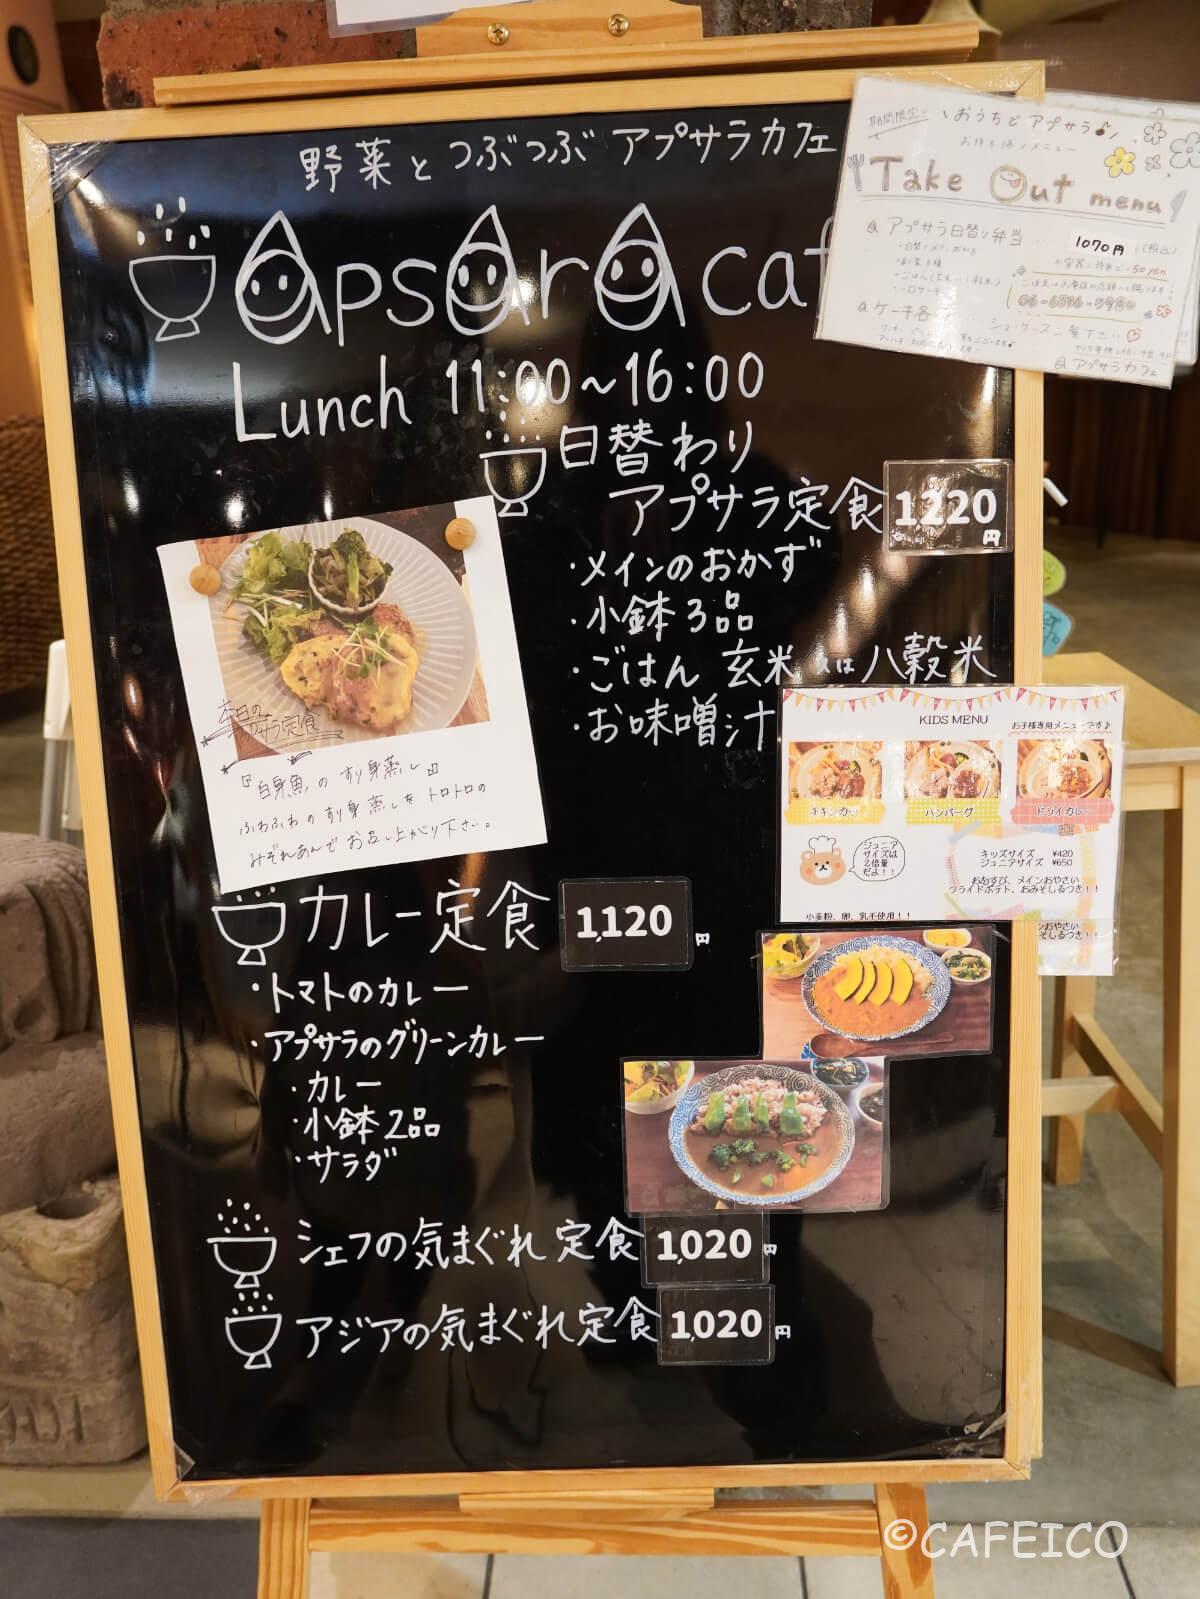 野菜とつぶつぶ アプサラカフェ
apsara caf
Lunch 11:00~16:00
日替わり
アプサラ定食 1220円
・メインのおかず
・小鉢3品
・ごはん 玄米 又は 八穀米
・お味噌汁
本日の
アプサラ定食
『白身魚のすり身蒸し』
ふわふわのすり身蒸しをトロトロの
みぞれあんでお召し上がり下さい。
カレー定食 1,120円
・トマトのカレー
・アプサラのグリーンカレー
・カレー
・小鉢2品
・サラダ
シェフの気まぐれ定食 1,020円
アジアの気まぐれ定食 1,020円
期間限定 おうちでアプサラ♪
お持ち帰りメニュー
Take Out menu
アプサラ日替り弁当 1070円(税込)
・日替りメインおかず
ケーキ各 ショーケースご覧下さい
アプサラカフェ
KIDS MENU お子様専用メニューです♪
チキンカツ ハンバーグ ドライカレー
ジュニア
サイズは
2倍量
だよ!!
キッズサイズ ¥420
ジュニアサイズ ¥650
おむすび、メインおやさい
フライドポテト、おみそしるつき!!
小麦粉、卵、乳不使用!!
ンおやさい
そしるつき!!
©CAFEICO